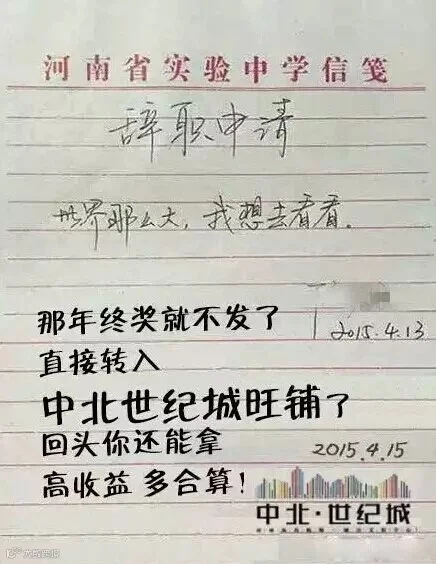 河南省实验中学信笺
辞职申请
世界那么大，我想去看看．
2015.4.13
那年终奖就不发了
直接转入
中北世纪城旺铺了
回头你还能拿
高收益 多合算！
2015.4.15
中北·世纪城